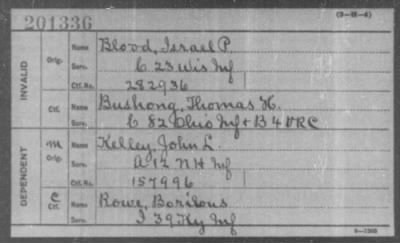 201336
(3—111—4)
INVALID
Orig.
Name Blood, Israel P.
Serv. C 23 Wis Inf
Ctf. No. 282936
Ctf.
Name Bushong, Thomas H.
Serv. C 82 Ohio Inf + B 4 VRC
DEPENDENT
M
Orig.
Name Kelley, John L.
Serv. A 12 N H Inf
Ctf. No. 157996
C
Ctf.
Name Rowe,
Serv. I 39 Ky Inf